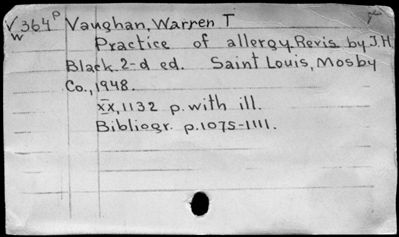 V 364 P Vaughan, Warren T
W
Practice of allergy. Revis by J.H.
Black. 2-d ed. Saint Louis, Mosby
Co., 1948.
XX, 1132 p. with ill.
Bibliogr. p. 1075-1111.